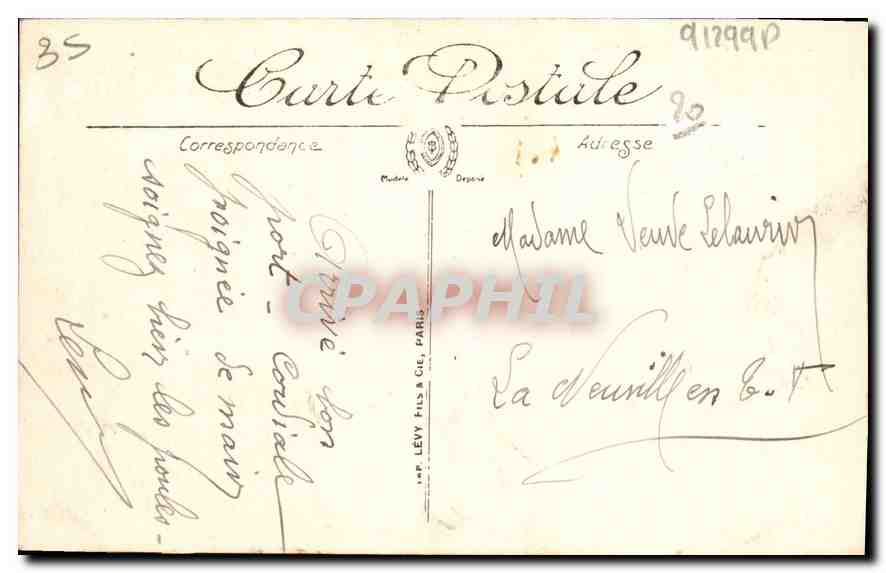 35
91299P
20
Carte Postale
Correspondance
Adresse
Modèle Déposé
Arrivé bon
port - Cordiale
poignée de main
soignez bien les poules -
Madame Veuve Lelaurin
La Neuville en T. à T.
IMP. LÉVY FILS & CIE, PARIS
CPAPHIL